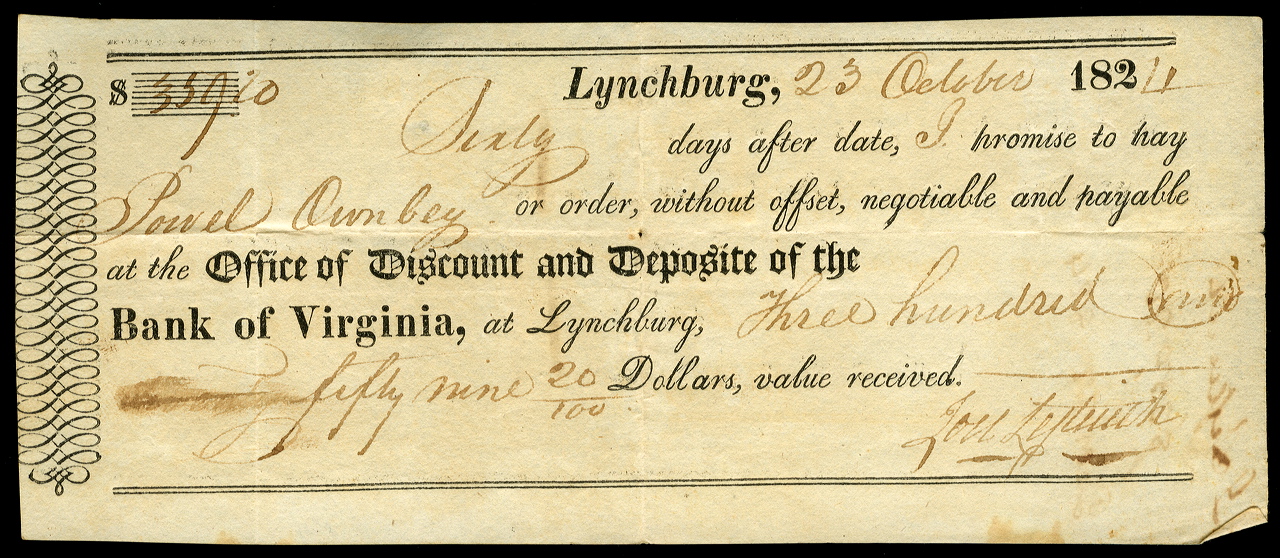 $ 359/20 Lynchburg, 23 October 1824
Sixty days after date, I promise to pay
Powel Ownbey or order, without offset, negotiable and payable
at the Office of Discount and Deposite of the
Bank of Virginia, at Lynchburg, Three hundred and
fifty nine 20/100 Dollars, value received.